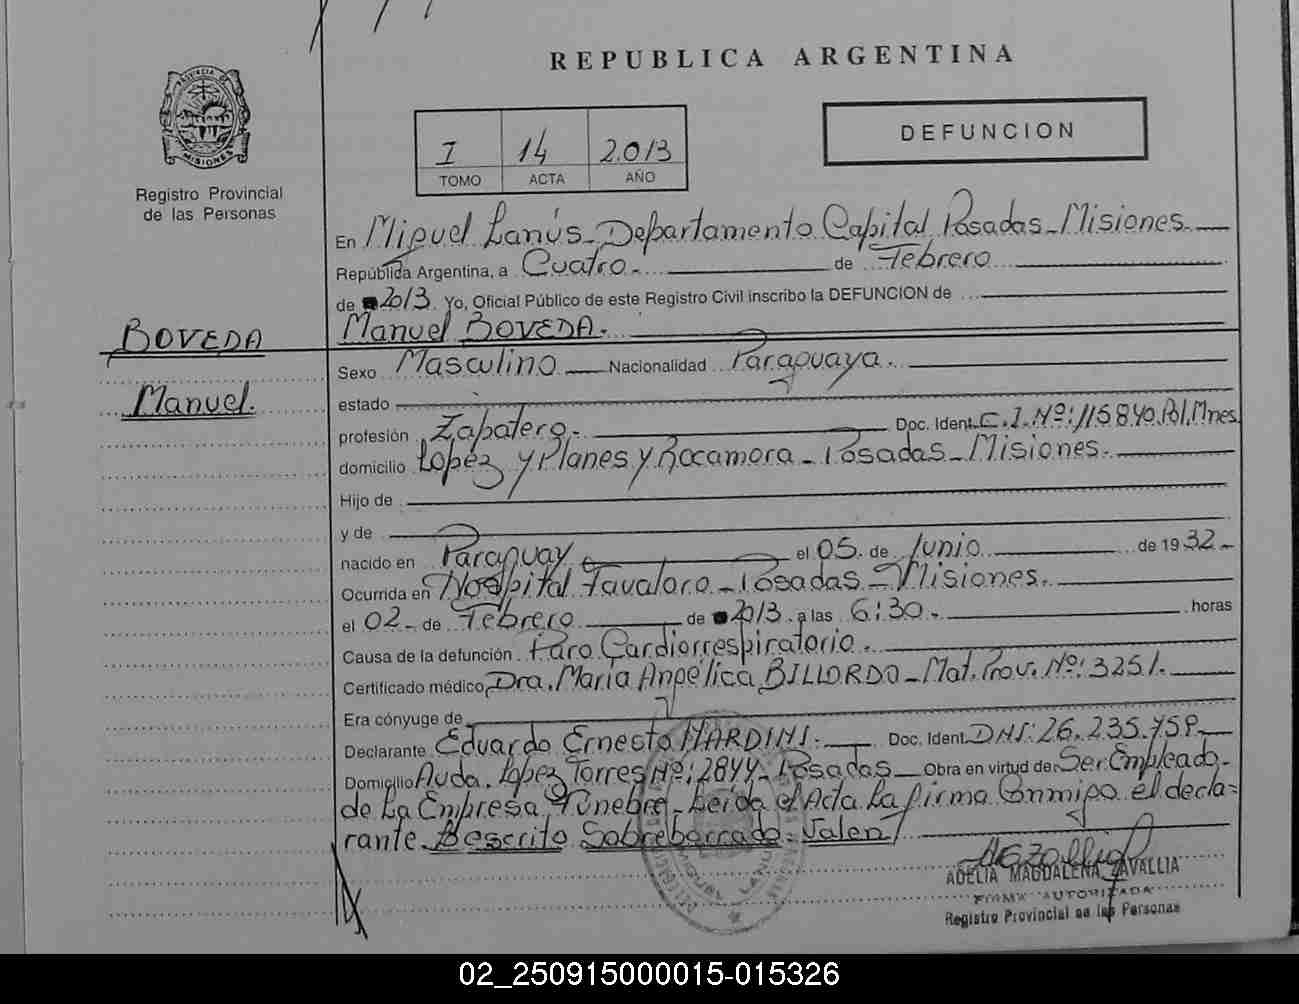 REPUBLICA ARGENTINA
PROVINCIA DE
MISIONES
Registro Provincial
de las Personas
I 14 2.013
TOMO ACTA AÑO
DEFUNCION
En Miguel Lanús_Departamento Capital Posadas_Misiones.
República Argentina, a Cuatro. de Febrero
de 2013 Yo, Oficial Público de este Registro Civil inscribo la DEFUNCION de
BOVEDA Manuel BOVEDA.
Sexo Masculino Nacionalidad Paraguaya.
Manuel. estado
profesión Zapatero. Doc. Ident. C.I.Nº:115840.Pol.Mnes.
domicilio Lopez y Planes y Rocamora_Posadas_Misiones.
Hijo de
y de
nacido en Paraguay el 05. de Junio de 1932
Ocurrida en Hospital Favaloro_Posadas_Misiones.
el 02 de Febrero de 2013 a las 6:30. horas
Causa de la defunción Paro Cardiorrespiratorio.
Certificado médico Dra. María Angélica BILLORDO_Mat.Prov.Nº:3251.
Era cónyuge de
Declarante Eduardo Ernesto NARDINI. Doc. Ident. DNI:26.235.459
Domicilio Avda. Lopez Torres Nº:2844_Posadas_ Obra en virtud de: Ser Empleado
de La Empresa Fúnebre_Leída el Acta La firma Conmigo el decla=
rante. Bescrito Sobreborrado=Valen
ADELIA MAGDALENA ZAVALLIA
FIRMA AUTORIZADA
Registro Provincial de las Personas
02_250915000015-015326